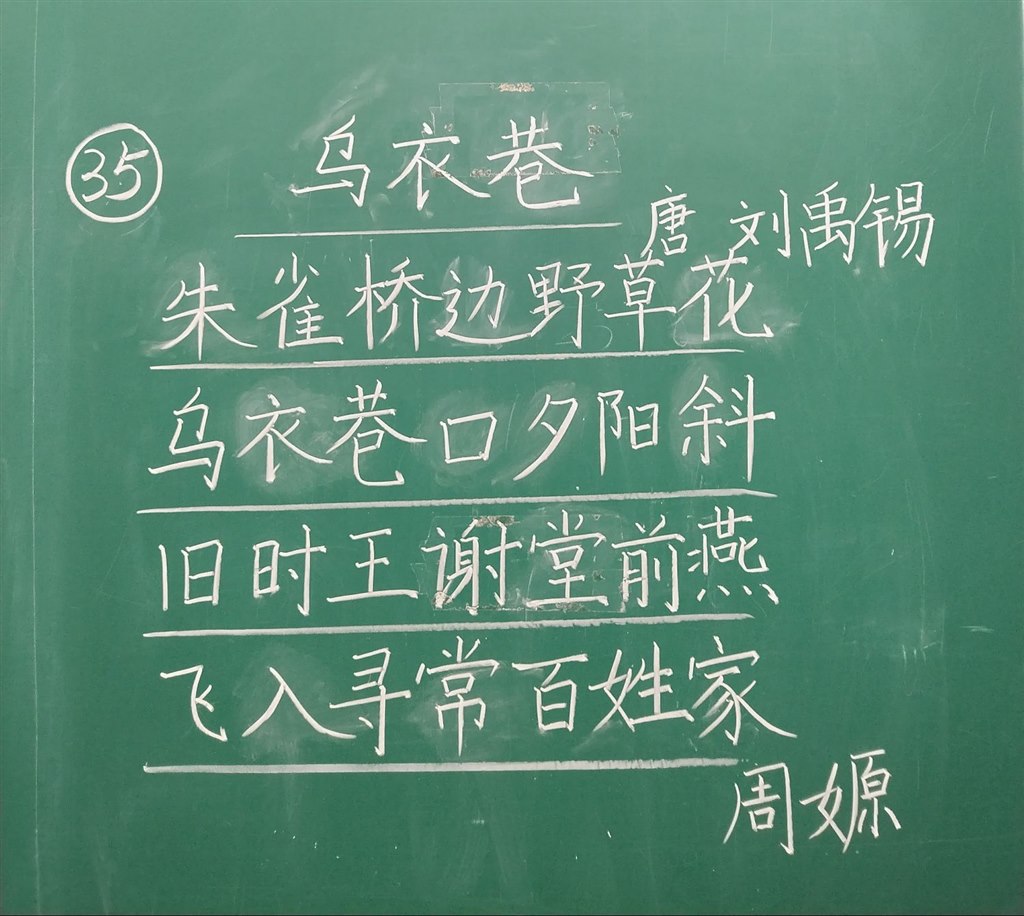 35
乌衣巷
唐 刘禹锡
朱雀桥边野草花
乌衣巷口夕阳斜
旧时王谢堂前燕
飞入寻常百姓家
周嫄